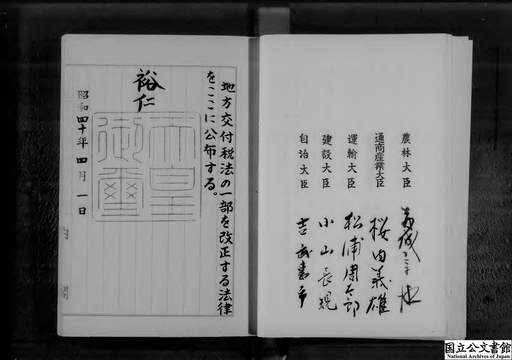 農林大臣
通商産業大臣 桜内義雄
運輸大臣 松浦周太郎
建設大臣 小山長規
自治大臣 吉武恵市
地方交付税法の一部を改正する法律
をここに公布する。
裕仁
天皇
御璽
昭和四十年四月一日
国立公文書館
National Archives of Japan